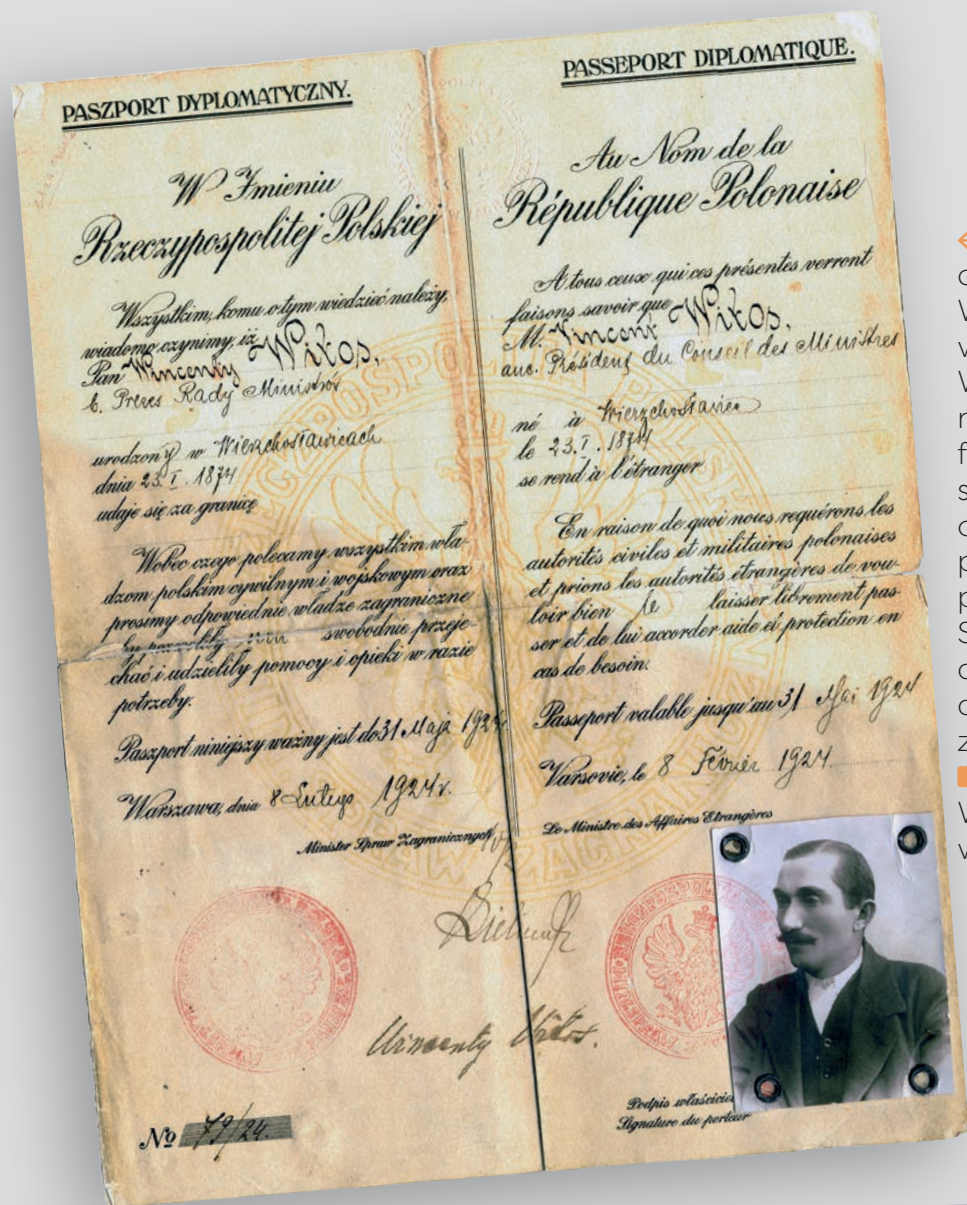 PASZPORT DYPLOMATYCZNY.
W Imieniu
Rzeczypospolitej Polskiej
Wszystkim, komu o tym wiedzieć należy,
wiadomo czynimy, iż
Pan Wincenty Witos,
b. Prezes Rady Ministrów
urodzony w Wierzchosławicach
dnia 23.I.1874
udaje się za granicę
Wobec czego polecamy wszystkim wła-
dzom polskim cywilnym i wojskowym oraz
prosimy odpowiednie władze zagraniczne
by pozwoliły mu swobodnie przeje-
chać i udzieliły pomocy i opieki w razie
potrzeby.
Paszport niniejszy ważny jest do 31 Maja 1924
Warszawa, dnia 8 Lutego 1924 r.
Minister Spraw Zagranicznych
PASSEPORT DIPLOMATIQUE.
Au Nom de la
République Polonaise
A tous ceux qui ces présentes verront
faisons savoir que
M. Vincent Witos,
anc. Président du Conseil des Ministres
né à Wierzchosławice
le 23.I.1874
se rend à l'étranger
En raison de quoi nous requérons les
autorités civiles et militaires polonaises
et prions les autorités étrangères de vou-
loir bien le laisser librement pas-
ser et de lui accorder aide et protection en
cas de besoin.
Passeport valable jusqu'au 31 Mai 1924
Varsovie, le 8 Février 1924.
Le Ministre des Affaires Etrangères
Wincenty Witos.
Podpis właściciel
Signature du porteur
No 79/24.